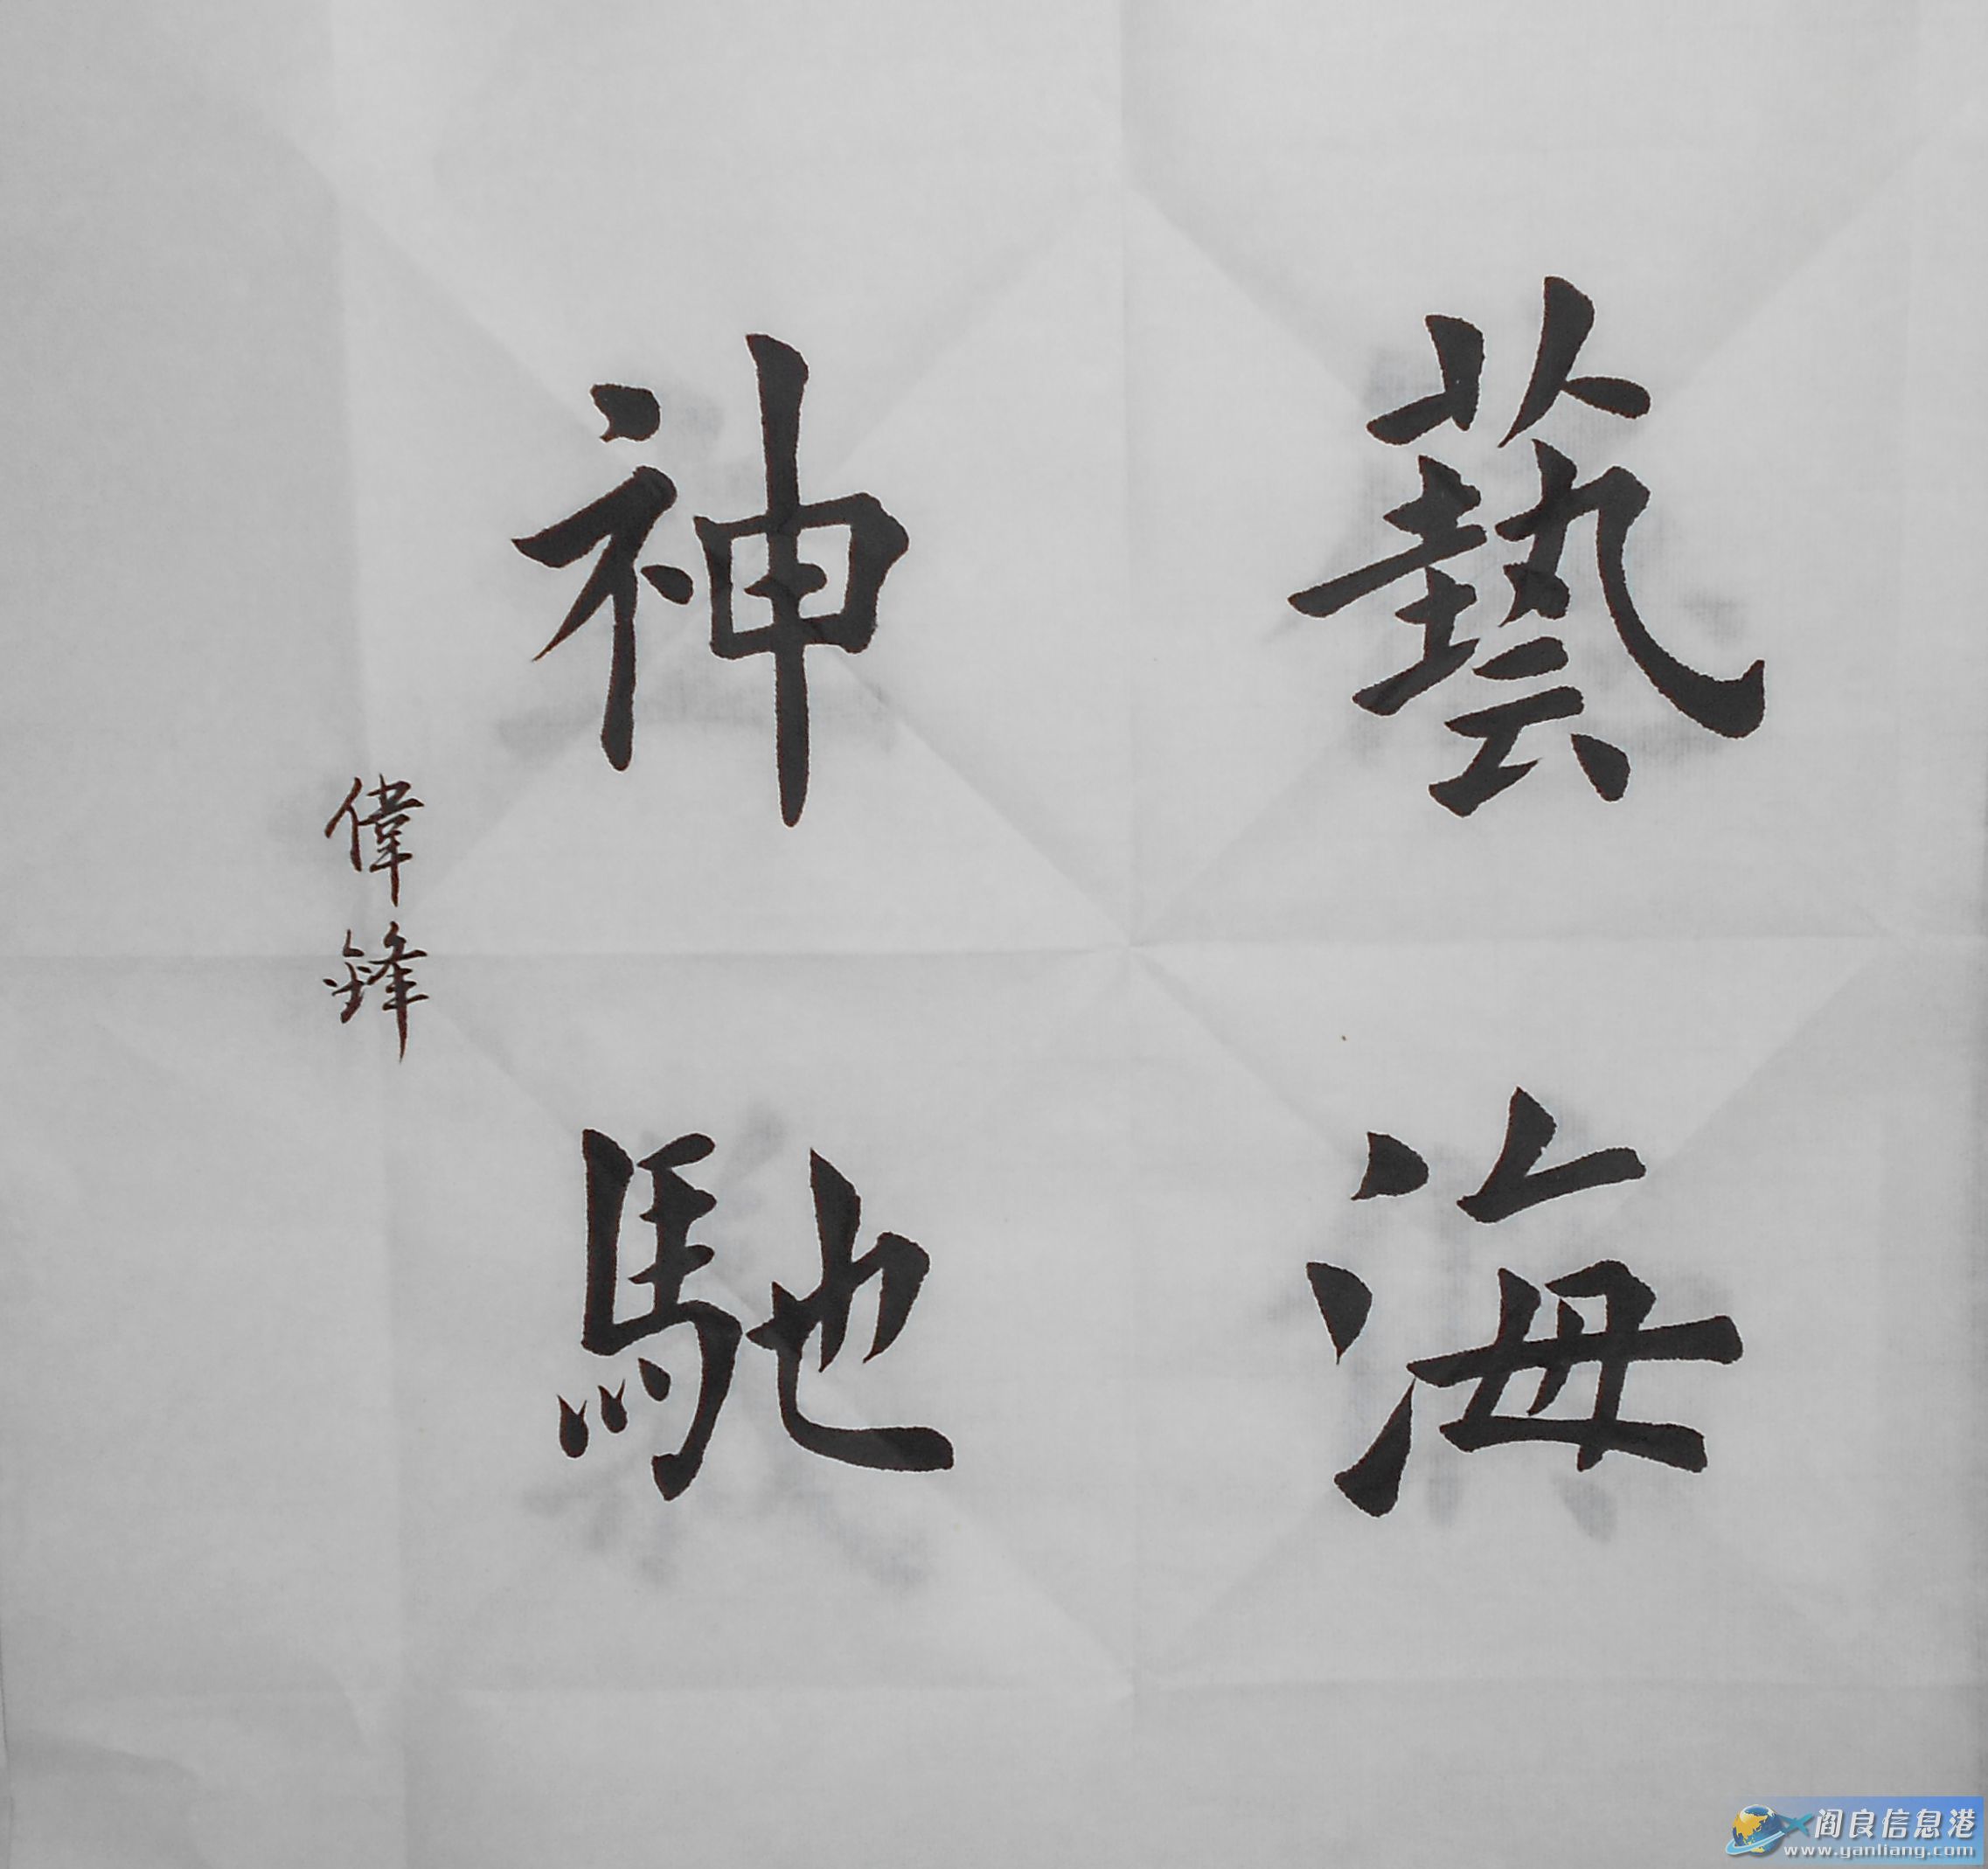 藝海
神馳
偉鋒
阎良信息港
www.yanliang.com